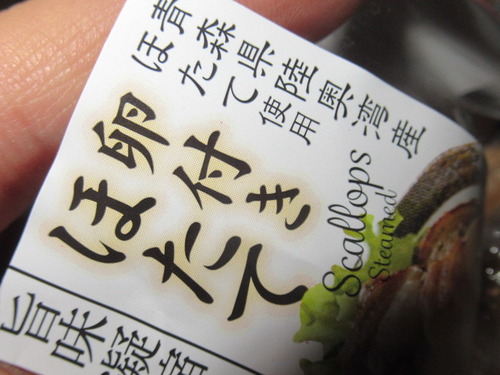 青森県陸奥湾産
ほたて使用
卵付き
ほたて
Scallops
Steamed
旨味凝